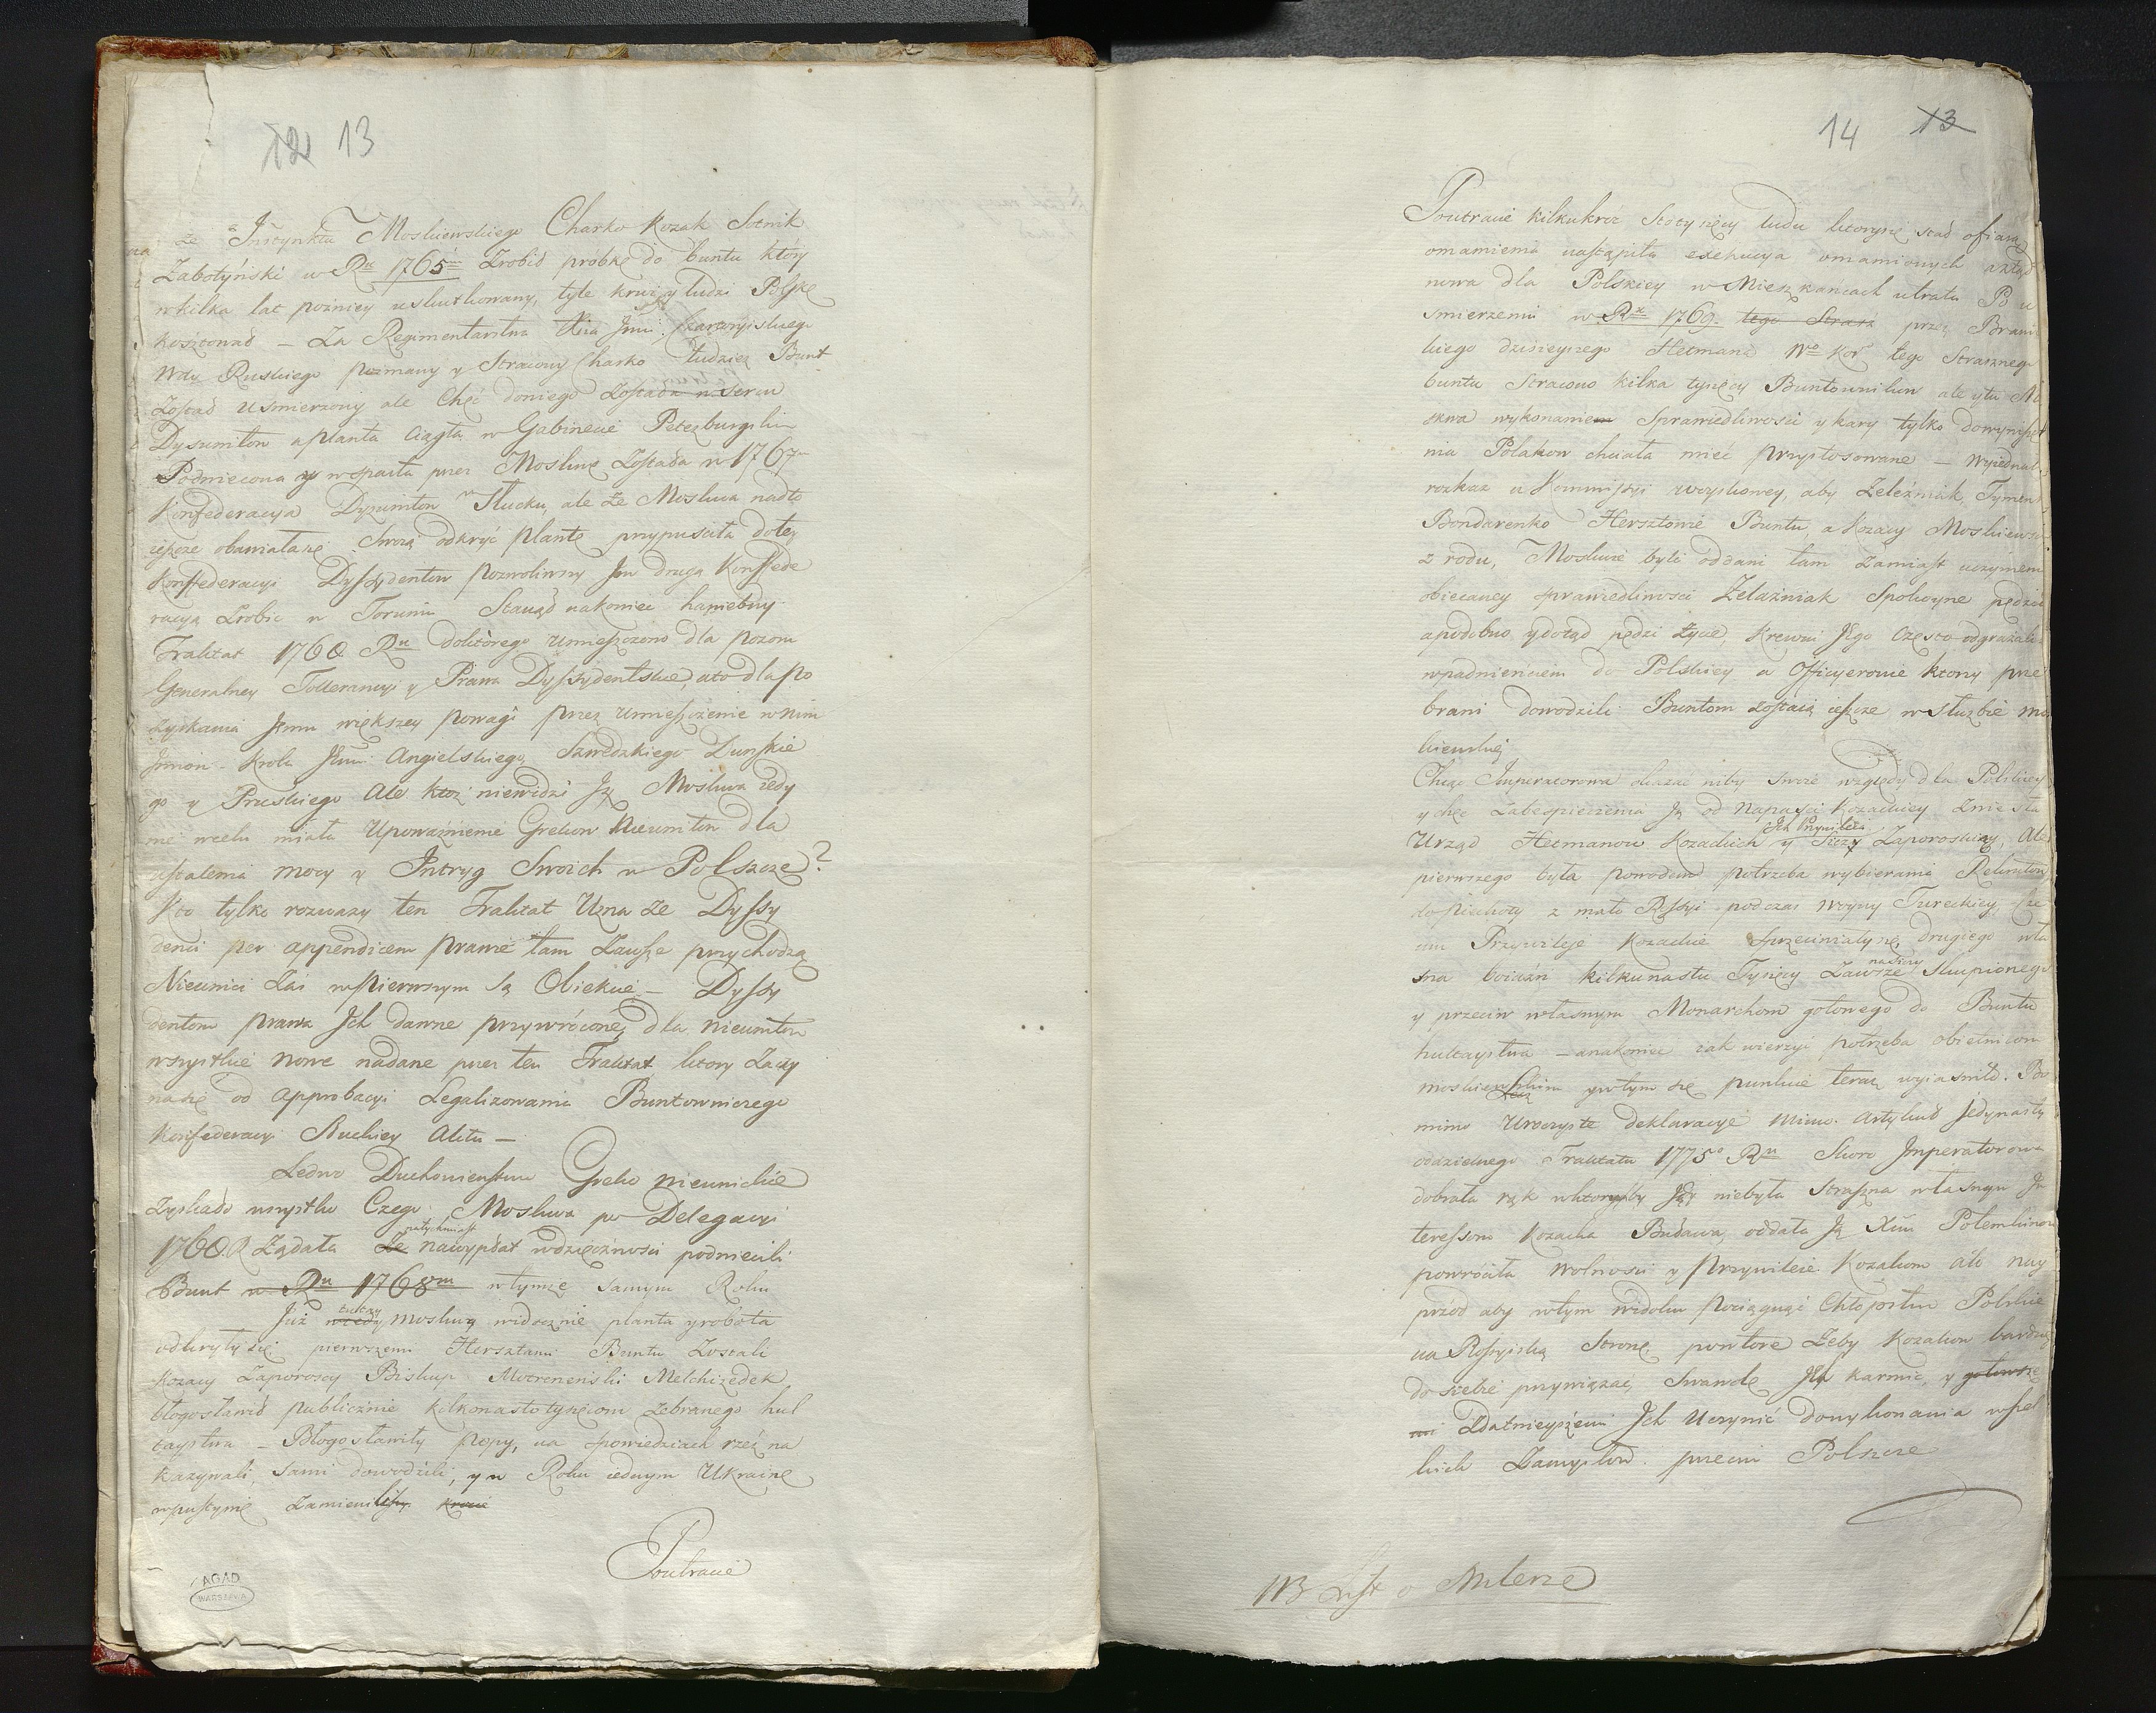 12 13
że Instynktu Moskiewskiego Charko Kozak Sotnik
Żabotyński w Ru 1765m Zrobił próbkę do buntu który
w kilka lat pożniey uskutkowany, tyle krwi y ludzi Polskę
kosztował – Za Regimentarstwa Xcia Jmci
Wdy Ruskiego poimany y Stracony Charko tudzież Bunt
Został Usmierzony ale Chęć doniego Została w sercu
Dysunitow a planta Ciągła w Gabinecie Petersburgskim
Podniecona y wsparta przez Moskwę Została w 1767m
Konfederacya Dyzunitow w Słucku, ale że Moskwa nadto
ieszcze obawiała się Swoią odkryć plantę przypusciła do tey
Konffederacyi Dyssydentow pozwoliwszy Jm drugą Konffede
racyą Zrobic w Toruniu Stanął nakoniec haniebny
Traktat 1768. Ru do ktorego umieszczono dla pozoru
Generalney Tollerancyi y Prawa Dyssydentskie, a to dla po
zyskania Jemu większey powagi przez umieszczenie w nim
Jmion Krola Jmci Angielskiego, Szwedzkiego Dunskie
go y Pruskiego Ale ktoż niewidzi Jż Moskwa iedy
nie wcelu miała Upoważnienie Grekow Nieunitow dla
ustalenia mocy y Intryg Swoich w Polszcze?
Kto tylko rozważy ten Traktat Uzna że Dyssy
denci per appendicem prawie tam Zawsze przychodzą
Nieunici Zaś w pierwszym są Obiekcie – Dyssy
dentom prawa Jch dawne przywrócone, dla nieunitow
wszystkie nowe nadane przez ten Traktat, ktory Zaczy
na się od approbacyi Legalizowania Buntowniczego
Konfederacyi Sluckiey Aktu –
Ledwo Duchowienstwo Greko nieunickie
Zyskało wszystko Czego Moskwa po Delegacyi
natychmiast
1768. R Żądała Że nawypłat wdzięczności podniecili
Bunt w Ru 1768vm w tymże samym Roku
tutay
Już wtedy moskwy widocznie planta y robota
odkryły się pierwszemi Hersztami Buntu Zostali
Kozacy Zaporoscy Biskup Motreneński Melchizedek
błogosławił publicznie kilkonastotysięcom zebranego hul
taystwa – Błogosławiły Popy, na spowiedziach rzeź na
kazywali, sami dowodzili, y w Roku iednym Ukrainę
w pustynię Zamienili
Poutracie
AGAD
WARSZAWA
14 13
Poutracie kilkukroc Stotysięcy ludu ktory się stał ofiarą
omamienia nastąpiła exekucya omamionych ztąd
nowa dla Polskiey w Mieszkancach utrata Po u
smierzeniu w Ru 1769. tego Strasz przez Brani
kiego dzisieyszego Hetmana Wo Kor tego Strasznego
buntu Stracono kilka tysięcy Buntownikow ale y tu Mo
skwa wykonaniem Sprawiedliwosci y kary tylko do wynisz
nia Polakow chciała mieć przystosowane – Wyiednał
rozkaz u Kommissyi woyskowey, aby Żeleźniak, Tymen
Bondarenko Hersztowie Buntu, a Kozacy Moskiewscy
z rodu, Moskwie byli oddani tam Zamiast uczynieni
obiecaney sprawiedliwosci Żelaźniak Spokoyne pędził
a podobno y dotąd pędzi życie, Krewni Jego Często odgrażali
wpadnieńciem do Polskiey a Officyerowie ktorzy prze
brani dowodzili Buntom zostaią ieszcze w służbie mos
kiewskiey
Chcąc Imperatorowa okazać niby Swoie względy dla Polskiey
y chęć Zabespieczenia Jey od Napaści Kozackiey Zniosła
Jch Przywileie
Urząd Hetmanow Kozackich y Siczy Zaporoskiey, Ale
pierwszego była powodem potrzeba wybierania Rekrutow
do piechoty z mało Rossyi podczas Woyny Tureckiey, Cze
mu Przywileje Kozackie Sprzeciwiały się, drugiego wła
na Siczy
sna boiaźń kilkunastu Tysięcy Zawsze Skupionego
y przeciw własnym Monarchom gotowego do Buntu
hultaystwa – a nakoniec iak wierzyć potrzeba obietnicom
moskiewskim y w tym się punkcie teraz wyiasniło. Bo
mimo Uroczyste deklaracye Mimo Artykuł Jedynasty
oddzielnego Traktatu 1775o Ru Skoro Imperatorowa
dobrała rąk w ktorychby Jey niebyła Straszna własnym In
teressom Kozacka Buława, oddała Ją Xciu Potemkinowi
powrociła Wolnosci y Przywileie Kozakom ale nay
przód aby w tym widoku Pociągnąć Chłopstwo Polskie
na Rossyiską Stronę powtore Żeby Kozakow bardziey
do siebie przywiązać, Swawolę Jch karmić, y gotowsze
mi Zdatnieyszemi Jch Uczynić do wykonania wszel
kich Zamysłow. przeciw Polszcze
NB List o Milerze